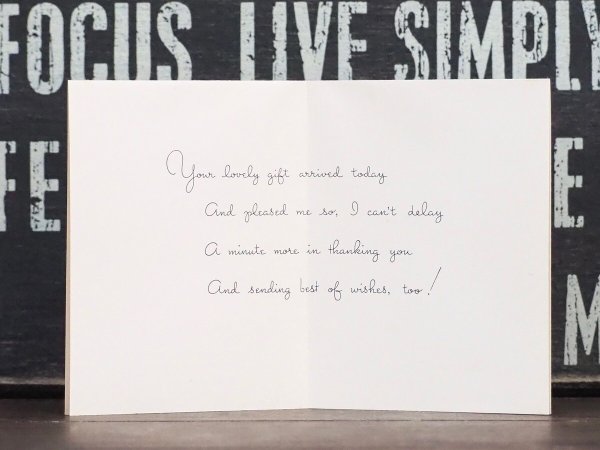 FOCUS LIVE SIMPLY
FE E
M
Your lovely gift arrived today
And pleased me so, I can't delay
A minute more in thanking you
And sending best of wishes, too!